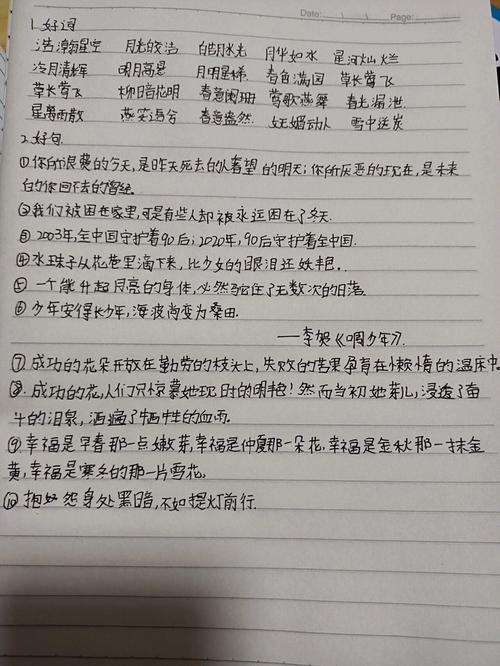 Date: Page:
1.好词
浩瀚星空 月光皎洁 皓月水光 月华如水 星河灿烂
冷月清辉 明月高悬 月明星稀 春色满园 草长莺飞
草长莺飞 柳暗花明 春意阑珊 莺歌燕舞 春光漏泄
星离雨散 燕笑语兮 春意盎然 妩媚动人 雪中送炭
2.好句
①你所浪费的今天,是昨天死去的人奢望的明天;你所厌恶的现在,是未来
的你回不去的曾经.
②我们被困在家里,可是有些人却被永远困在了冬天.
③2003年,全中国守护着90后;2020年,90后守护着全中国.
④水珠子从花苞里滴下来,比少女的眼泪还妖艳.
⑤一个能升起月亮的身体,必然驮住了无数次的日落.
⑥少年安得长少年,海波尚变为桑田.
——李贺《啁少年》.
⑦成功的花朵开放在勤劳的枝头上,失败的苦果孕育在懒惰的温床中.
⑧.成功的花,人们只惊慕她现时的明艳!然而当初她芽儿,浸透了奋
斗的泪泉,洒遍了牺牲的血雨.
⑨幸福是早春那一点嫩芽,幸福是仲夏那一朵花,幸福是金秋那一抹金
黄,幸福是寒冬的那一片雪花.
⑩抱怨身处黑暗,不如提灯前行.